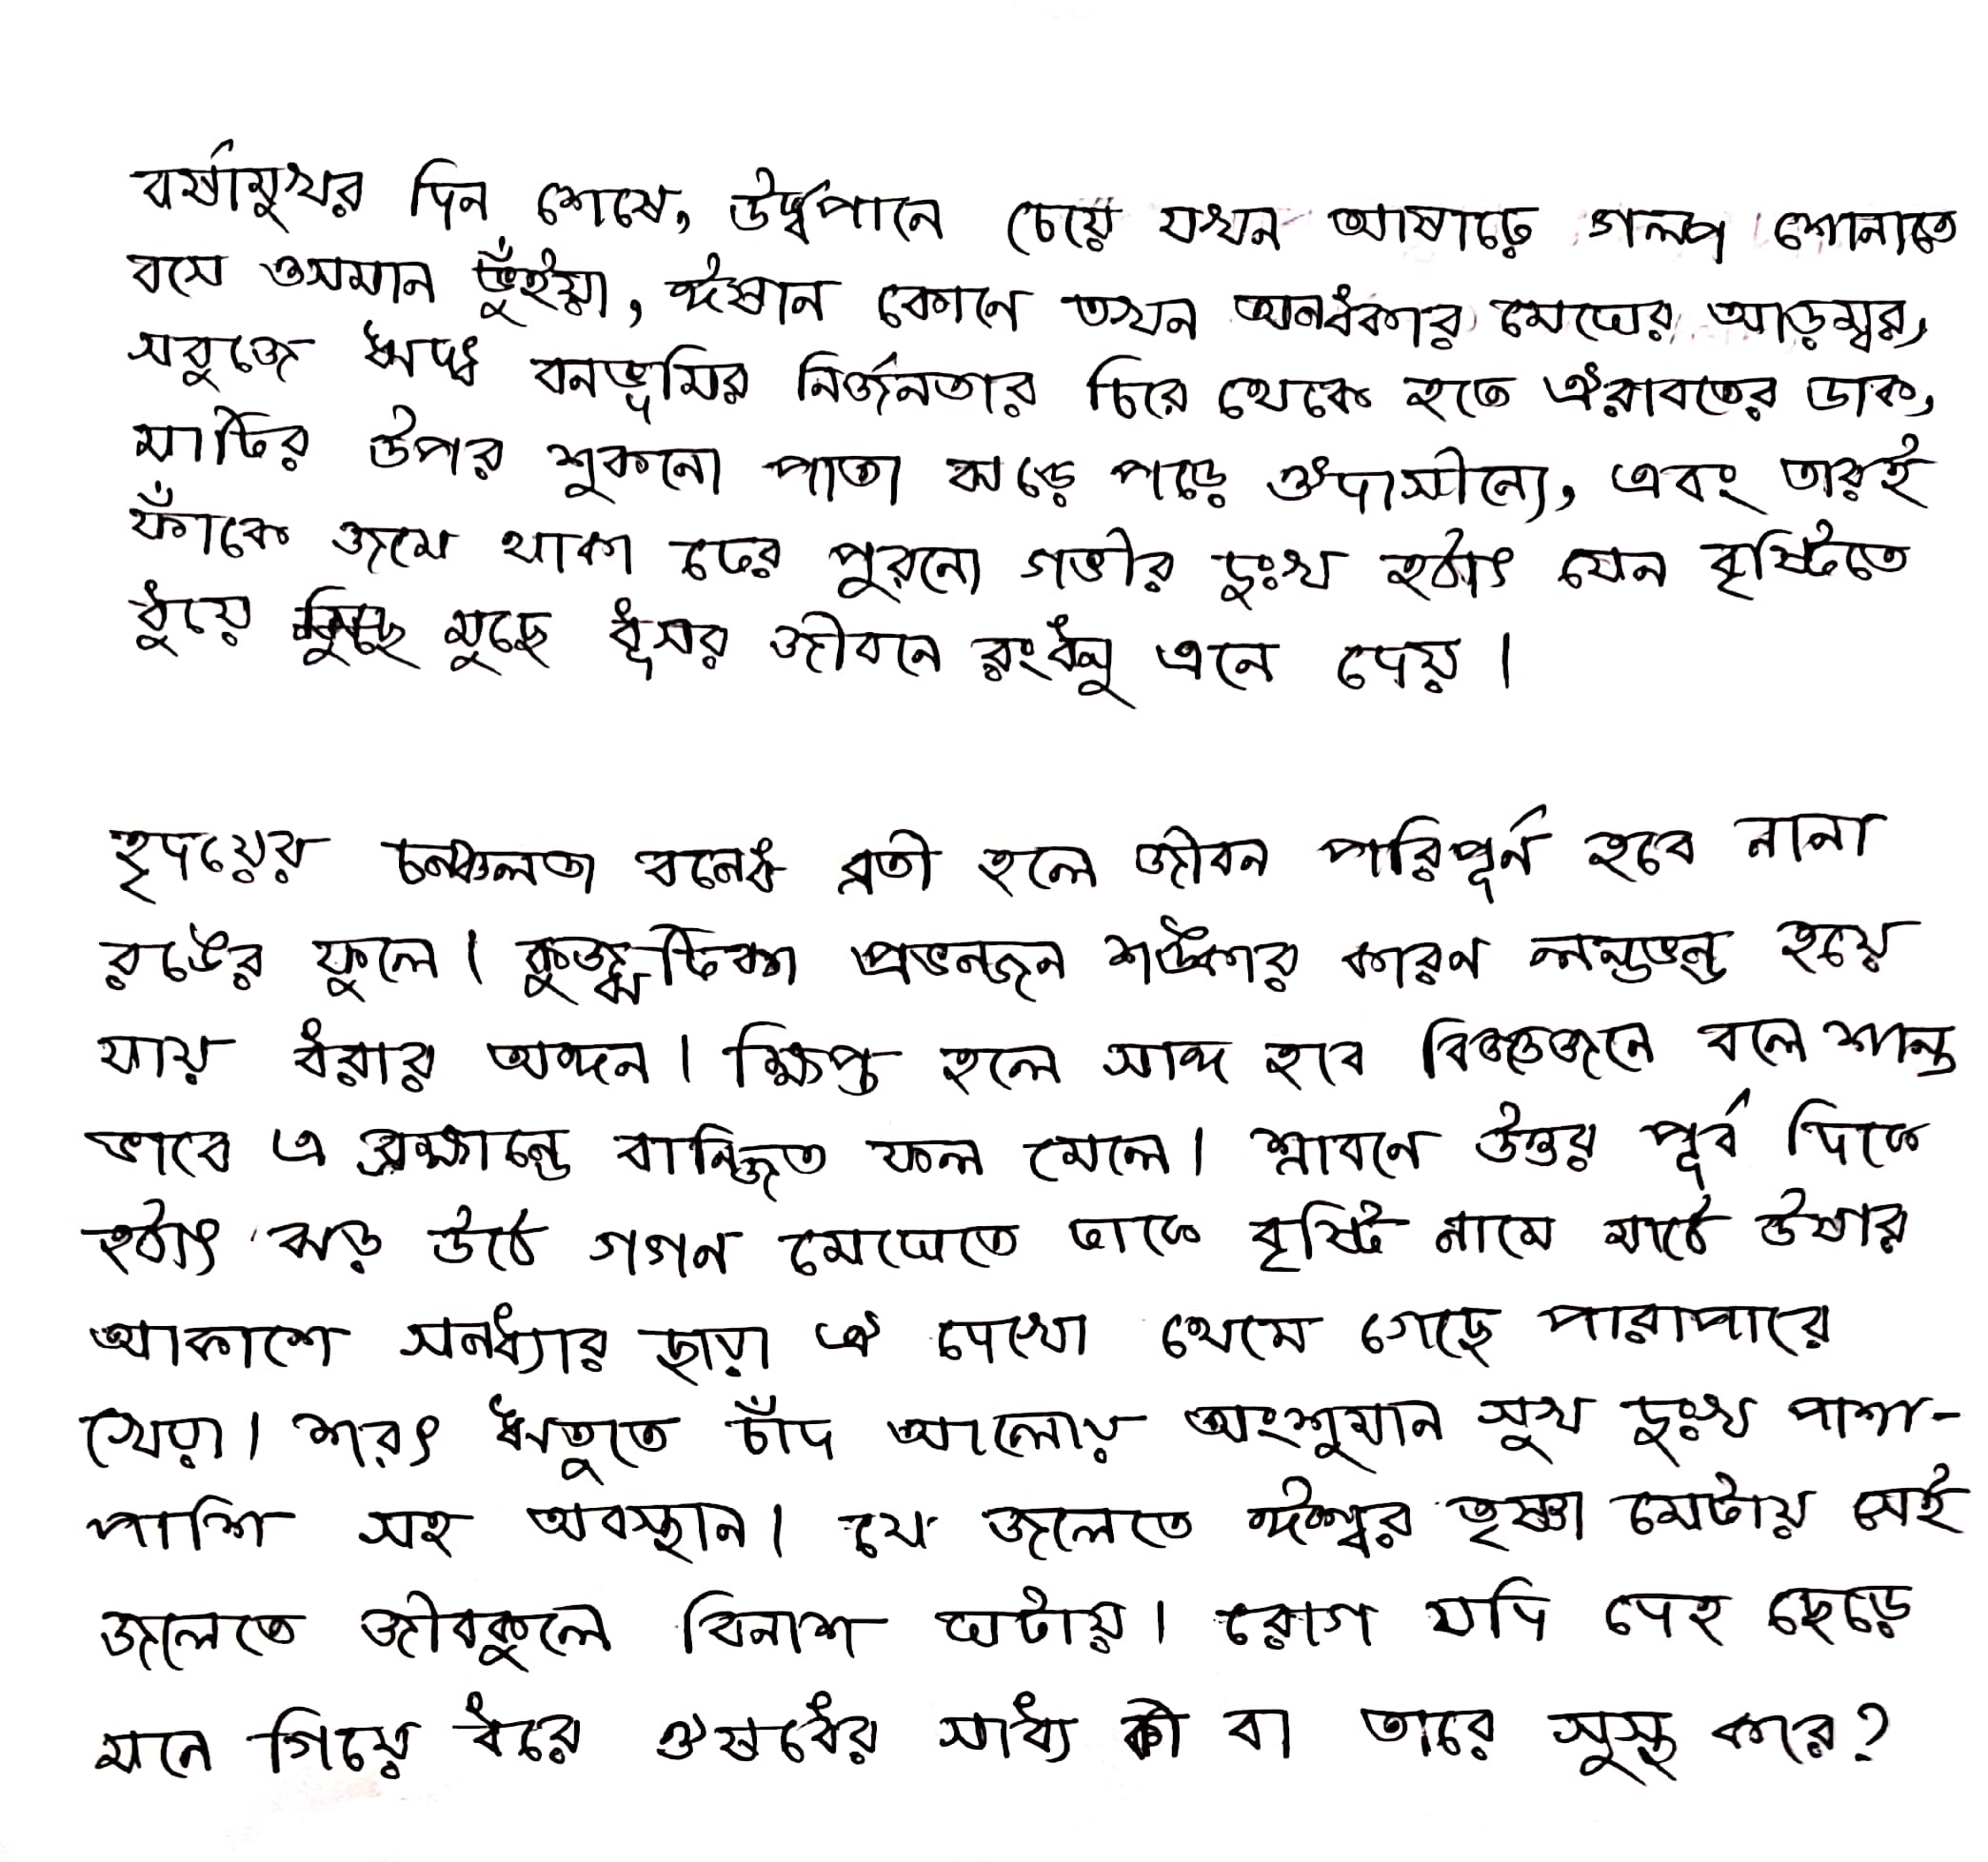 বর্ষামুখর দিন শেষে, উর্দ্ধপানে চেয়ে যখন আষাঢ়ে গল্প শোনাতে
বসে ওসমান ভুঁইয়া, ঈষান কোনে তখন অন্ধকার মেঘের আড়ম্বর,
সবুজে ঋদ্ধ বনভূমির নির্জনতার চিরে থেকে হতে ঐরাবতের ডাক,
মাটির উপর শুকনো পাতা ঝড়ে পড়ে ঔদাসীন্যে, এবং তারই
ফাঁকে জমে থাকা ঢের পুরনো গভীর দুঃখ হঠাৎ যেন বৃষ্টিতে
ধুয়ে মুছে ধূসর জীবনে রংধনু এনে দেয়।
হৃদয়ের চঞ্চলতা বন্ধে ব্রতী হলে জীবন পরিপূর্ন হবে নানা
রঙের ফুলে। কুজ্ঝটিকা প্রভঞ্জন শঙ্কার কারন লন্ডভন্ড হয়ে
যায় ধরার অঙ্গন। ক্ষিপ্ত হলে সাঙ্গ হবে বিজ্ঞজনে বলে শান্ত
ভাবে এ ব্রহ্মান্ডে বাঞ্ছিত ফল মেলে। শ্রাবনে উত্তর পূর্ব দিকে
হঠাৎ ঝড় উঠে গগন মেঘেতে ঢাকে বৃষ্টি নামে মাঠে ঊষার
আকাশে সন্ধ্যার ছায়া ঐ দেখো থেমে গেছে পারাপারে
খেয়া। শরৎ ঋতুতে চাঁদ আলোয় অংশুমান সুখ দুঃখ পাশা-
পাশি সহ অবস্থান। যে জলেতে ঈশ্বর তৃষ্ণা মেটায় সেই
জলেতে জীবকুলে বিনাশ ঘটায়। রোগ যদি দেহ ছেড়ে
মনে গিয়ে ধরে ঔষধের সাধ্য কী বা তারে সুস্থ করে?